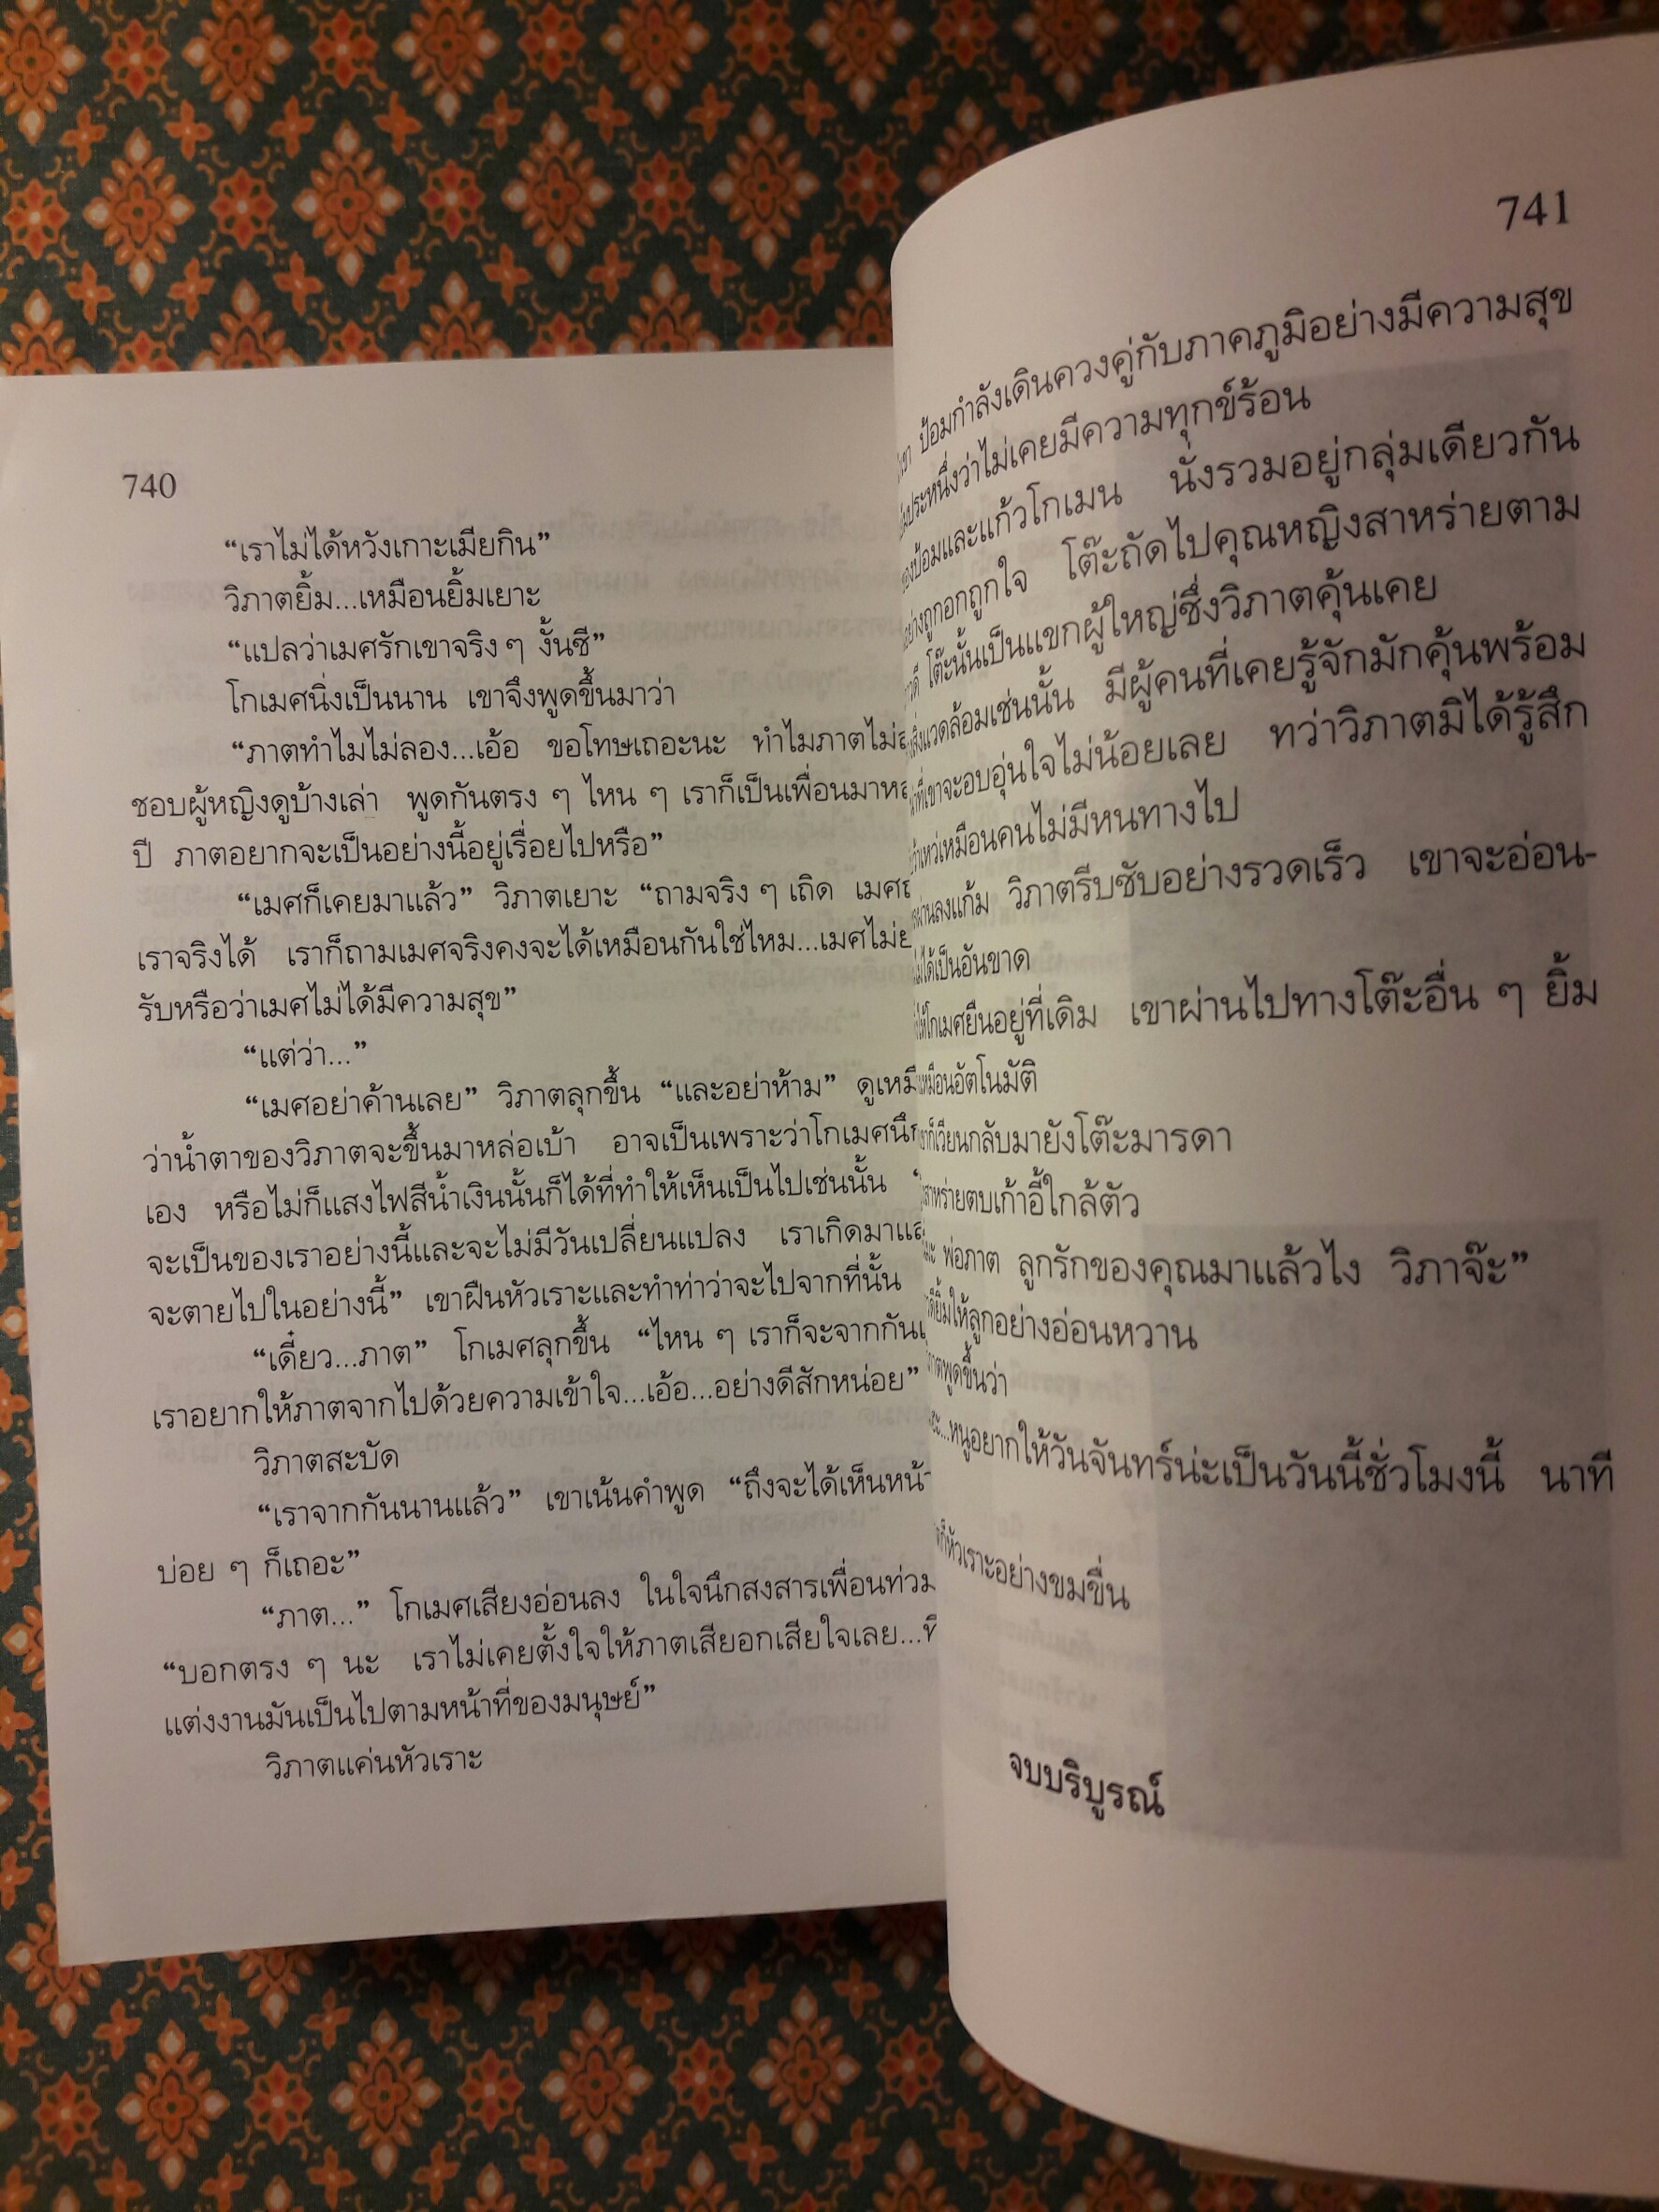 740
“เราไม่ได้หวังเกาะเมียกิน”
วิภาตยิ้ม...เหมือนยิ้มเยาะ
“แปลว่าเมศรักเขาจริง ๆ งั้นซี”
โกเมศนิ่งเป็นนาน เขาจึงพูดขึ้นมาว่า
“ภาตทำไมไม่ลอง...เอ้อ ขอโทษเถอะนะ ทำไมภาตไม่
ชอบผู้หญิงดูบ้างเล่า พูดกันตรง ๆ ไหน ๆ เราก็เป็นเพื่อนมา
ปี ภาตอยากจะเป็นอย่างนี้อยู่เรื่อยไปหรือ”
“เมศก็เคยมาแล้ว” วิภาตเยาะ “ถามจริง ๆ เถิด เมศ
เราจริงได้ เราก็ถามเมศจริงคงจะได้เหมือนกันใช่ไหม...เมศไม่
รับหรือว่าเมศไม่ได้มีความสุข”
“แต่ว่า...”
“เมศอย่าค้านเลย” วิภาตลุกขึ้น “และอย่าห้าม”
ว่าน้ำตาของวิภาตจะขึ้นมาหล่อเบ้า อาจเป็นเพราะว่าโกเมศ
เอง หรือไม่ก็แสงไฟสีน้ำเงินนั้นก็ได้ที่ทำให้เห็นเป็นไปเช่นนั้น
จะเป็นของเราอย่างนี้และจะไม่มีวันเปลี่ยนแปลง เราเกิดมา
จะตายไปในอย่างนี้” เขาฝืนหัวเราะและทำท่าว่าจะไปจากที่นั้น
“เดี๋ยว...ภาต” โกเมศลุกขึ้น “ไหน ๆ เราก็จะจากกัน
เราอยากให้ภาตจากไปด้วยความเข้าใจ...เอ้อ...อย่างดีสักหน่อย”
วิภาตสะบัด
“เราจากกันนานแล้ว” เขาเน้นคำพูด “ถึงจะได้เห็น
บ่อย ๆ ก็เถอะ”
“ภาต...” โกเมศเสียงอ่อนลง ในใจนึกสงสารเพื่อน
“บอกตรง ๆ นะ เราไม่เคยตั้งใจให้ภาตเสียอกเสียใจเลย...
แต่งงานมันเป็นไปตามหน้าที่ของมนุษย์”
วิภาตแค่นหัวเราะ
741
ป้อมกำลังเดินควงคู่กับภาคภูมิอย่างมีความสุข
ประหนึ่งว่าไม่เคยมีความทุกข์ร้อน
ป้อมและแก้วโกเมน นั่งรวมอยู่กลุ่มเดียวกัน
อย่างถูกอกถูกใจ โต๊ะถัดไปคุณหญิงสาหร่ายตาม
โต๊ะนั้นเป็นแขกผู้ใหญ่ซึ่งวิภาตคุ้นเคย
สิ่งแวดล้อมเช่นนั้น มีผู้คนที่เคยรู้จักมักคุ้นพร้อม
ที่เขาจะอบอุ่นใจไม่น้อยเลย ทว่าวิภาตมิได้รู้สึก
เหมือนคนไม่มีหนทางไป
ผ่านลงแก้ม วิภาตรีบซับอย่างรวดเร็ว เขาจะอ่อน-
ได้เป็นอันขาด
โกเมศยืนอยู่ที่เดิม เขาผ่านไปทางโต๊ะอื่น ๆ ยิ้ม
เหมือนอัตโนมัติ
ก็เวียนกลับมายังโต๊ะมารดา
สาหร่ายตบเก้าอี้ใกล้ตัว
พ่อภาต ลูกรักของคุณมาแล้วไง วิภาจ๊ะ”
ยิ้มให้ลูกอย่างอ่อนหวาน
พูดขึ้นว่า
หนูอยากให้วันจันทร์น่ะเป็นวันนี้ชั่วโมงนี้ นาที
หัวเราะอย่างขมขื่น
จบบริบูรณ์